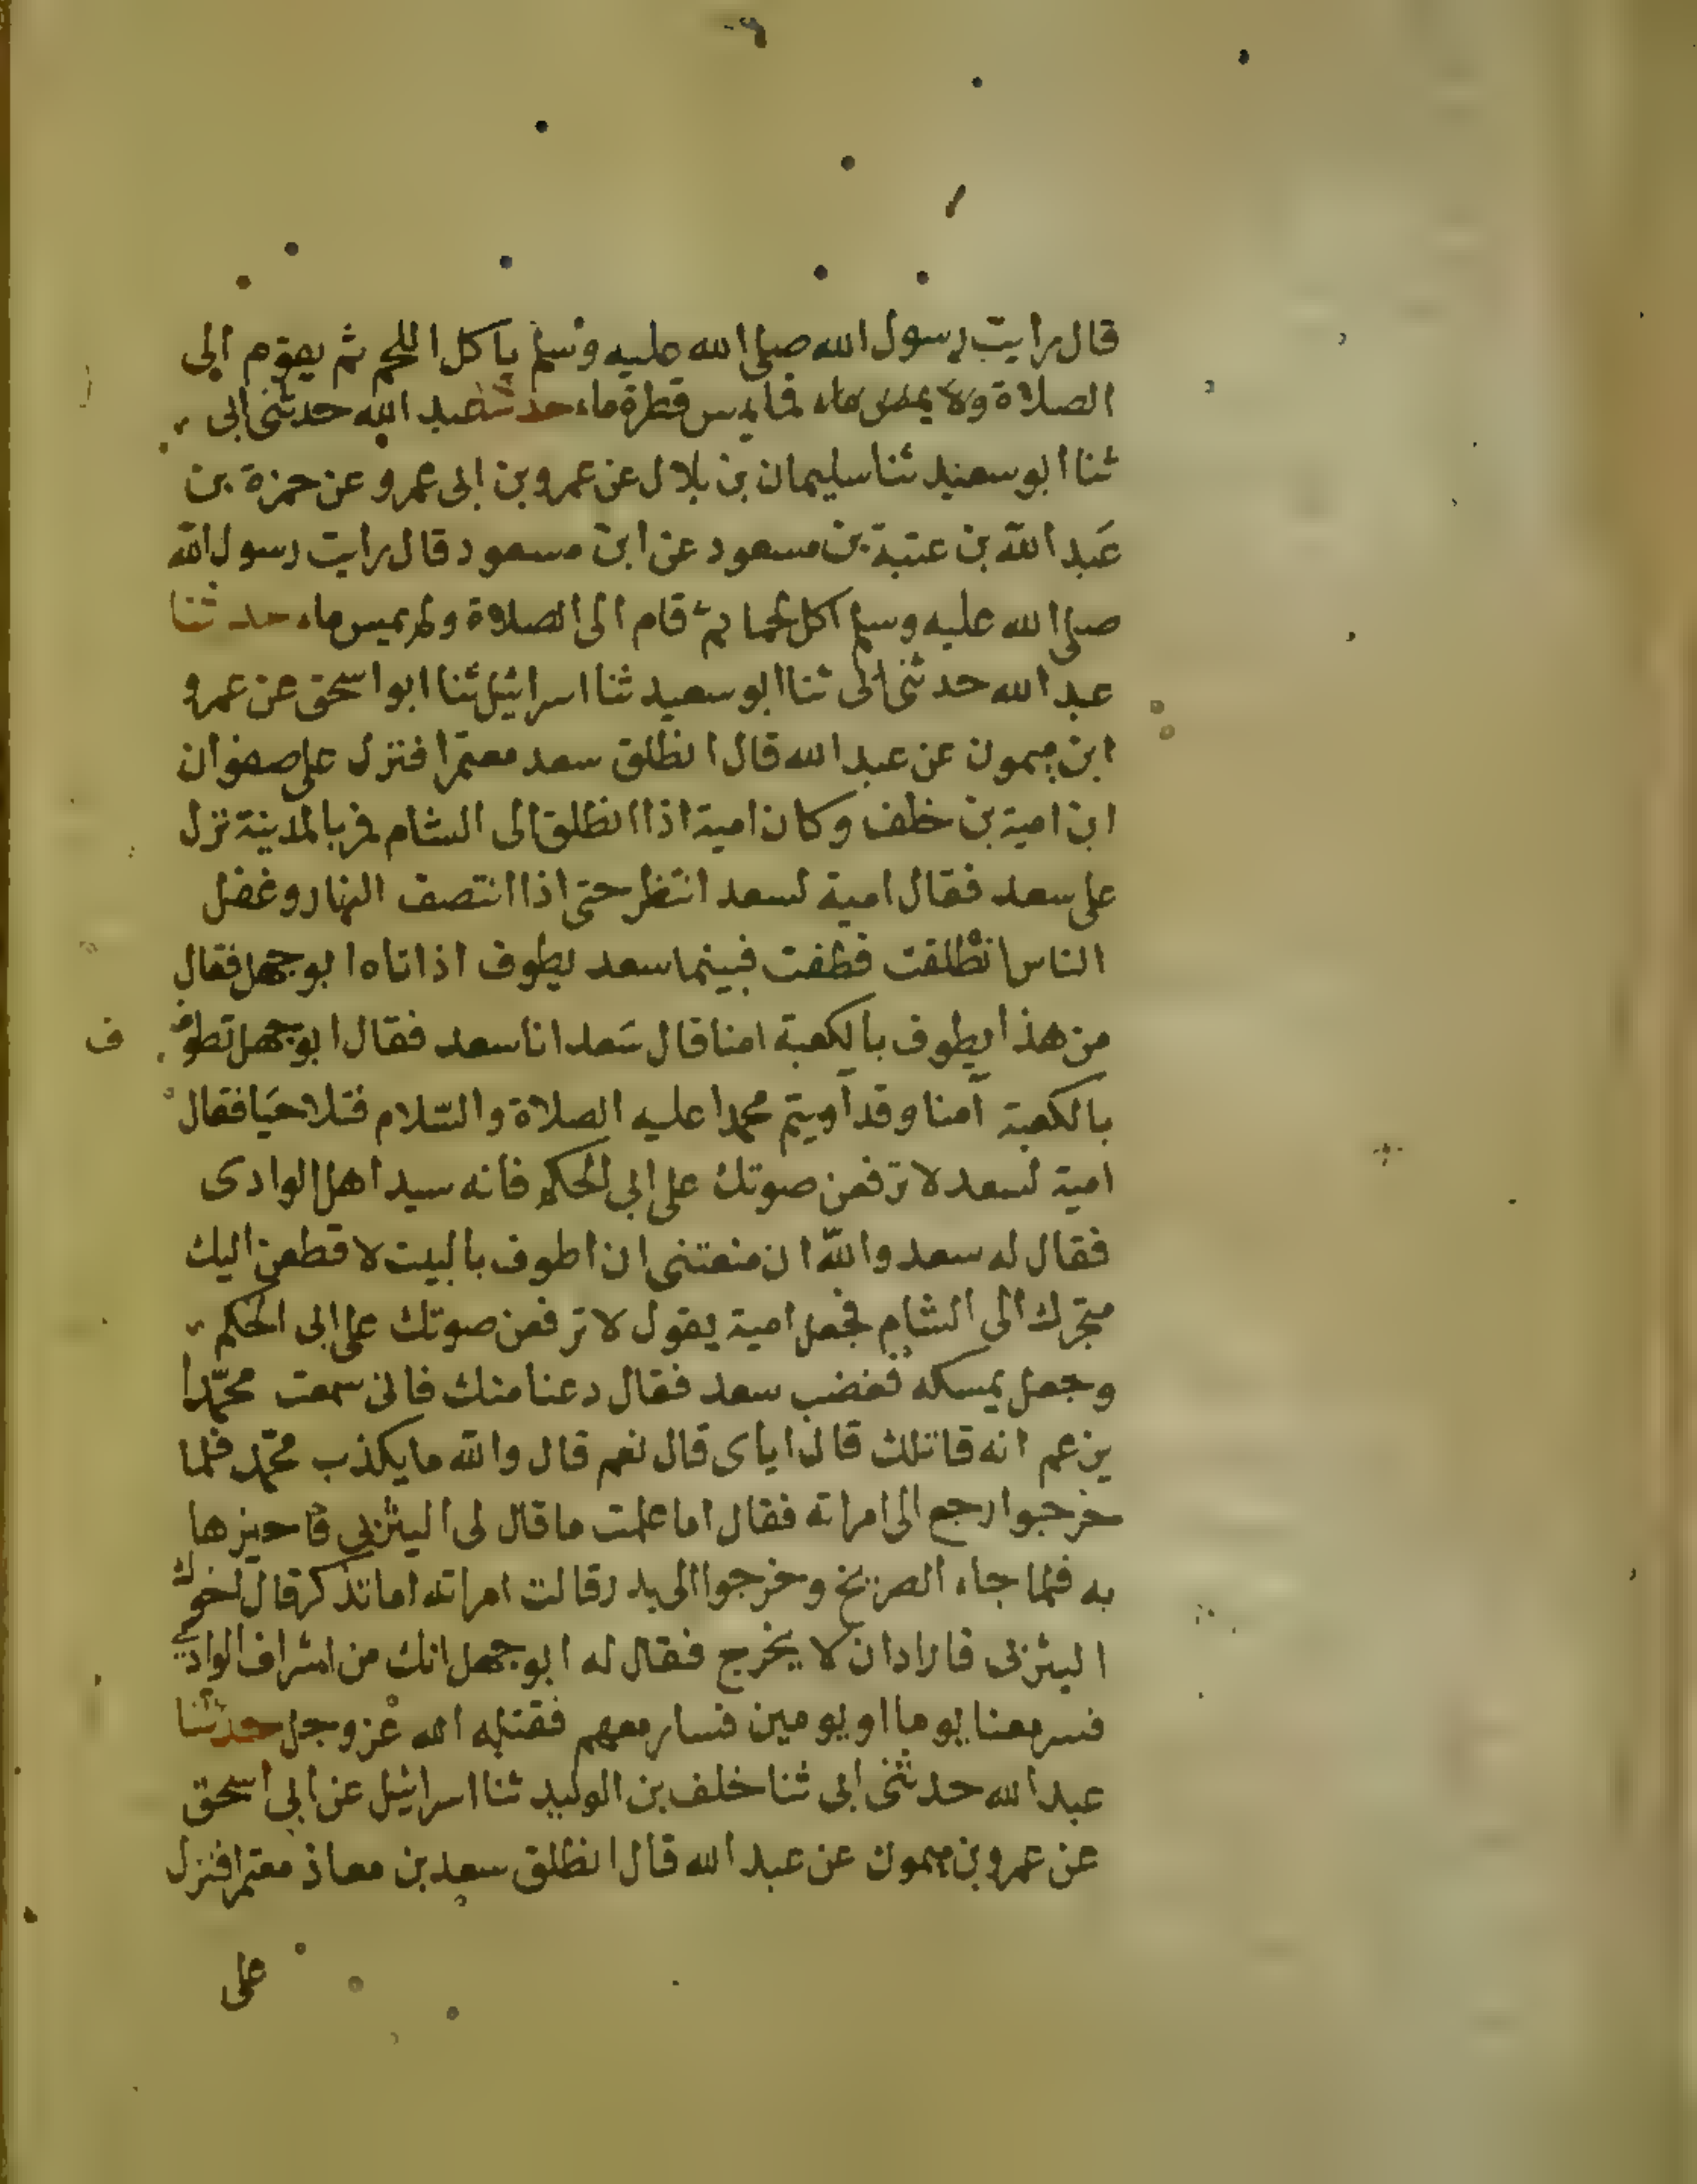 قال رايت رسول الله صلى الله عليه وسلم ياكل اللحم ثم يقوم الى
الصلاة ولا يمس ماء فما يمس قطرة ماء حدثنا عبد الله حدثنى ابى
ثنا ابو سعيد ثنا سليمان بن بلال عن عمرو بن ابى عمرو عن حمزة بن
عبد الله بن عتبة بن مسعود عن ابن مسعود قال رايت رسول الله
صلى الله عليه وسلم اكل لحما ثم قام الى الصلاة ولم يمس ماء حدثنا
عبد الله حدثنى ابى ثنا ابو سعيد ثنا اسرائيل ثنا ابو اسحق عن عمرو
ابن ميمون عن عبد الله قال انطلق سعد معتمرا فنزل على صفوان
ابن امية بن خلف وكان امية اذا انطلق الى الشام فمر بالمدينة نزل
على سعد فقال امية لسعد انتظر حتى اذا انتصف النهار وغفل
الناس انطلقت فطفت فبينما سعد يطوف اذ اتاه ابو جهل فقال
من هذا يطوف بالكعبة امنا قال سَعد انا سعد فقال ابو جهل تطوف
ف
بالكعبة آمنا وقد آويتم محمدا عليه الصلاة والسّلام فتلاحيَا فقال
امية لسعد لا ترفعن صوتك على ابى الحكم فانه سيد اهل الوادى
فقال له سعد والله ان منعتنى ان اطوف بالبيت لاقطعن اليك
متجرك الى الشام فجعل امية يقول لا ترفعن صوتك على ابى الحكم
وجعل يمسكه فغضب سعد فقال دعنا منك فانى سمعت محمّدا
يزعم انه قاتلك قال اياى قال نعم قال والله ما يكذب محمّد فلما
خرجوا رجع الى امراته فقال اما علمت ما قال لى اليثربى فاخبرها
به فلما جاء الصريخ وخرجوا الى بدر قالت امراته اما تذكر قال اخوك
اليثربى فاراد ان لا يخرج فقال له ابو جهل انك من اشراف الوادى
فسر معنا يوما او يومين فسار معهم فقتله الله عز وجل حدثنا
عبد الله حدثنى ابى ثنا خلف بن الوليد ثنا اسرائيل عن ابى اسحق
عن عمرو بن ميمون عن عبد الله قال انطلق سعد بن معاذ معتمرا فنزل
على